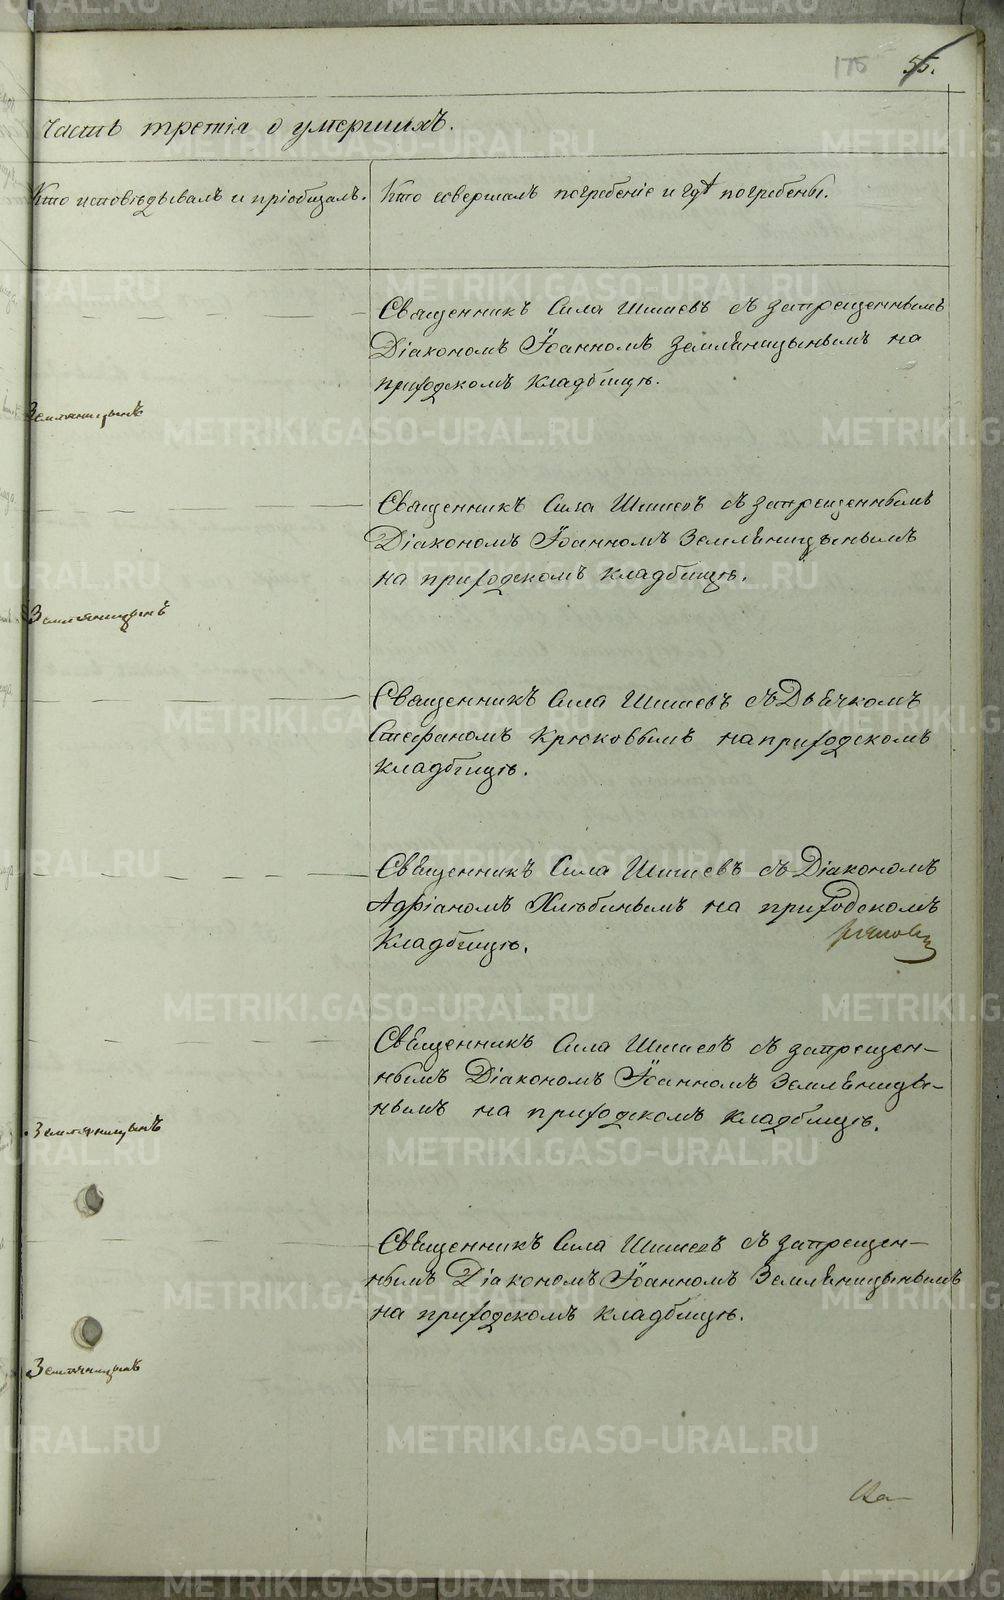 175 55.
Часть третія о умершихъ.
Кто исповѣдывалъ и пріобщалъ.
Кто совершалъ погребеніе и гдѣ погребены.
Священникъ Сила Шишевъ съ запрещеннымъ
Діакономъ Іоанномъ Землѧницынымъ на
приходскомъ кладбищѣ.
Землѧницынъ
Священникъ Сила Шишевъ съ запрещеннымъ
Діакономъ Іоанномъ Землѧницынымъ
на приходскомъ кладбищѣ.
Землѧницынъ
Священникъ Сила Шишевъ съ Дьячкомъ
Стефаномъ Крюковымъ на приходскомъ
кладбищѣ.
Священникъ Сила Шишевъ съ Діакономъ
Адріаномъ Хлюбинымъ на приходскомъ
кладбищѣ.
Священникъ Сила Шишевъ съ запрещен-
нымъ Діакономъ Іоанномъ Землѧницы-
нымъ на приходскомъ кладбищѣ.
Землѧницынъ
Священникъ Сила Шишевъ съ запрещен-
нымъ Діакономъ Іоанномъ Землѧницынымъ
на приходскомъ кладбищѣ.
Землѧницынъ
METRIKI.GASO-URAL.RU